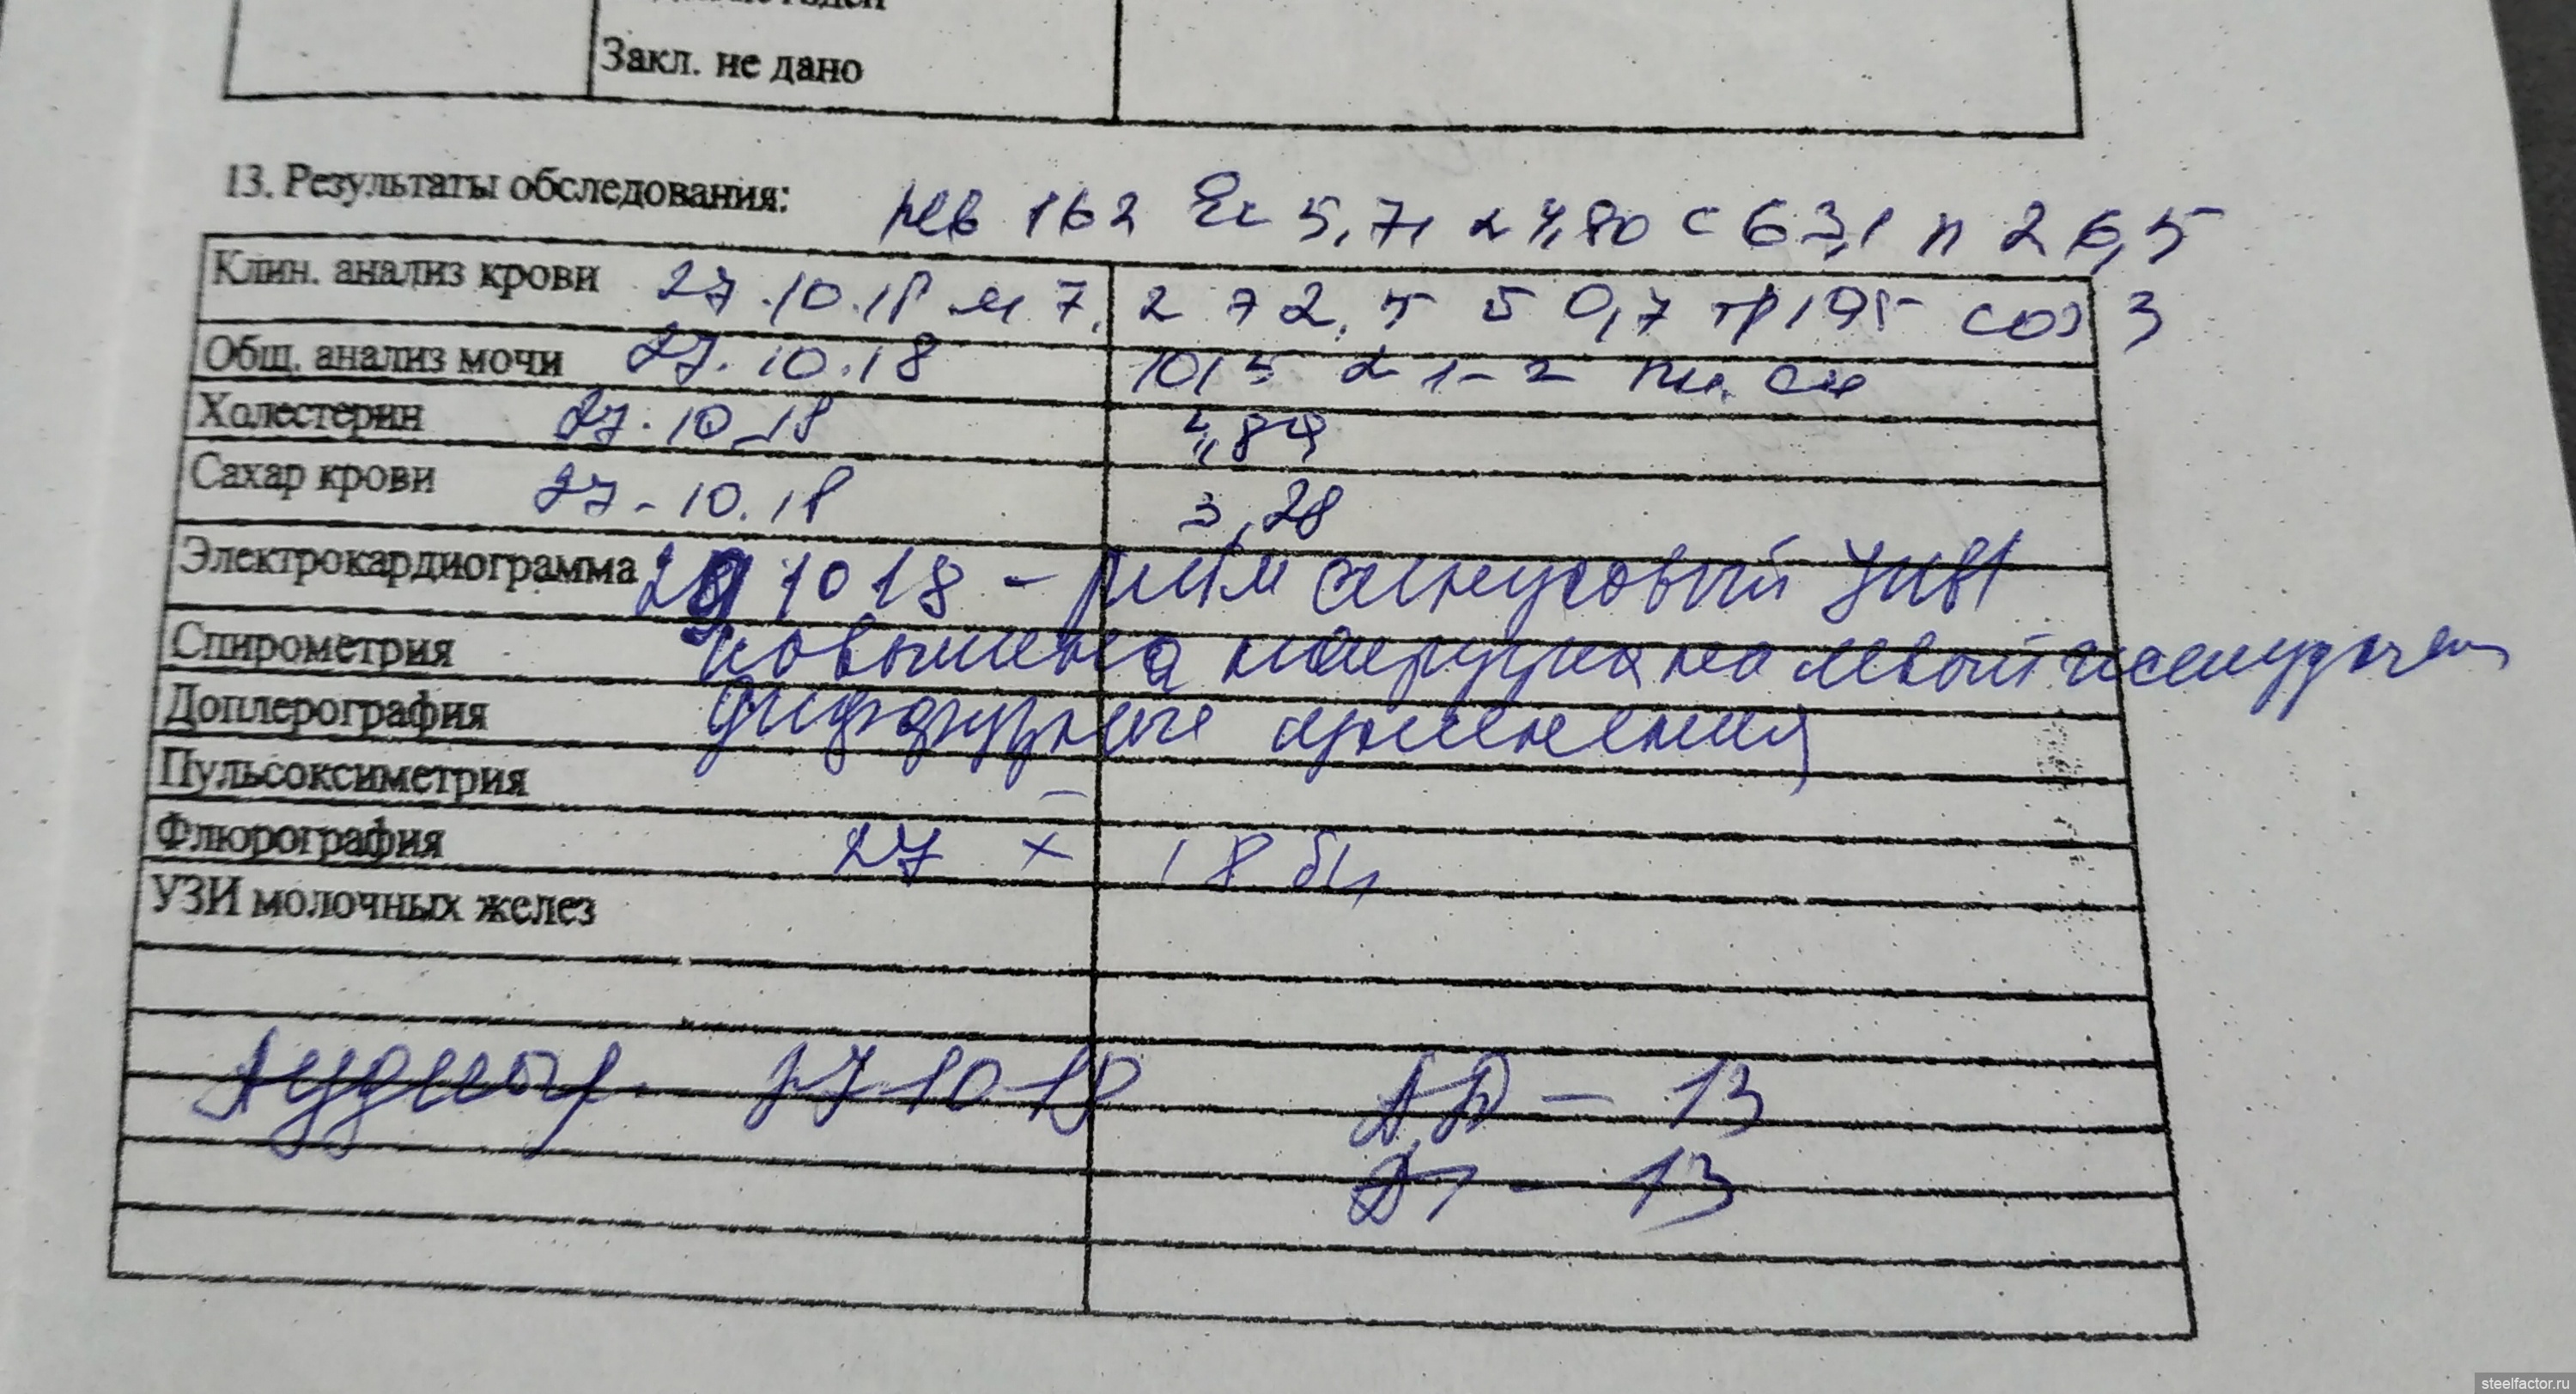 Закл. не дано
13. Результаты обследования:
Hb 162 Er 5,71 L 4,80 с 63,1 л 26,5
Клин. анализ крови 27.10.18 м 7,2 э 2,5 б 0,7 тр 195 соэ 3
Общ. анализ мочи 27.10.18 1015 L 1-2 пл. ед
Холестерин 27.10.18 4,84
Сахар крови 27.10.18 3,28
Электрокардиограмма 29 10 18 - ритм синусовый
Спирометрия повышена нагрузка на левый желудочек
Доплерография диффузные изменения
Пульсоксиметрия –
Флюрография 27 X 18 бп
УЗИ молочных желез
27-10-18 АД - 13
AS - 13
steelfactor.ru